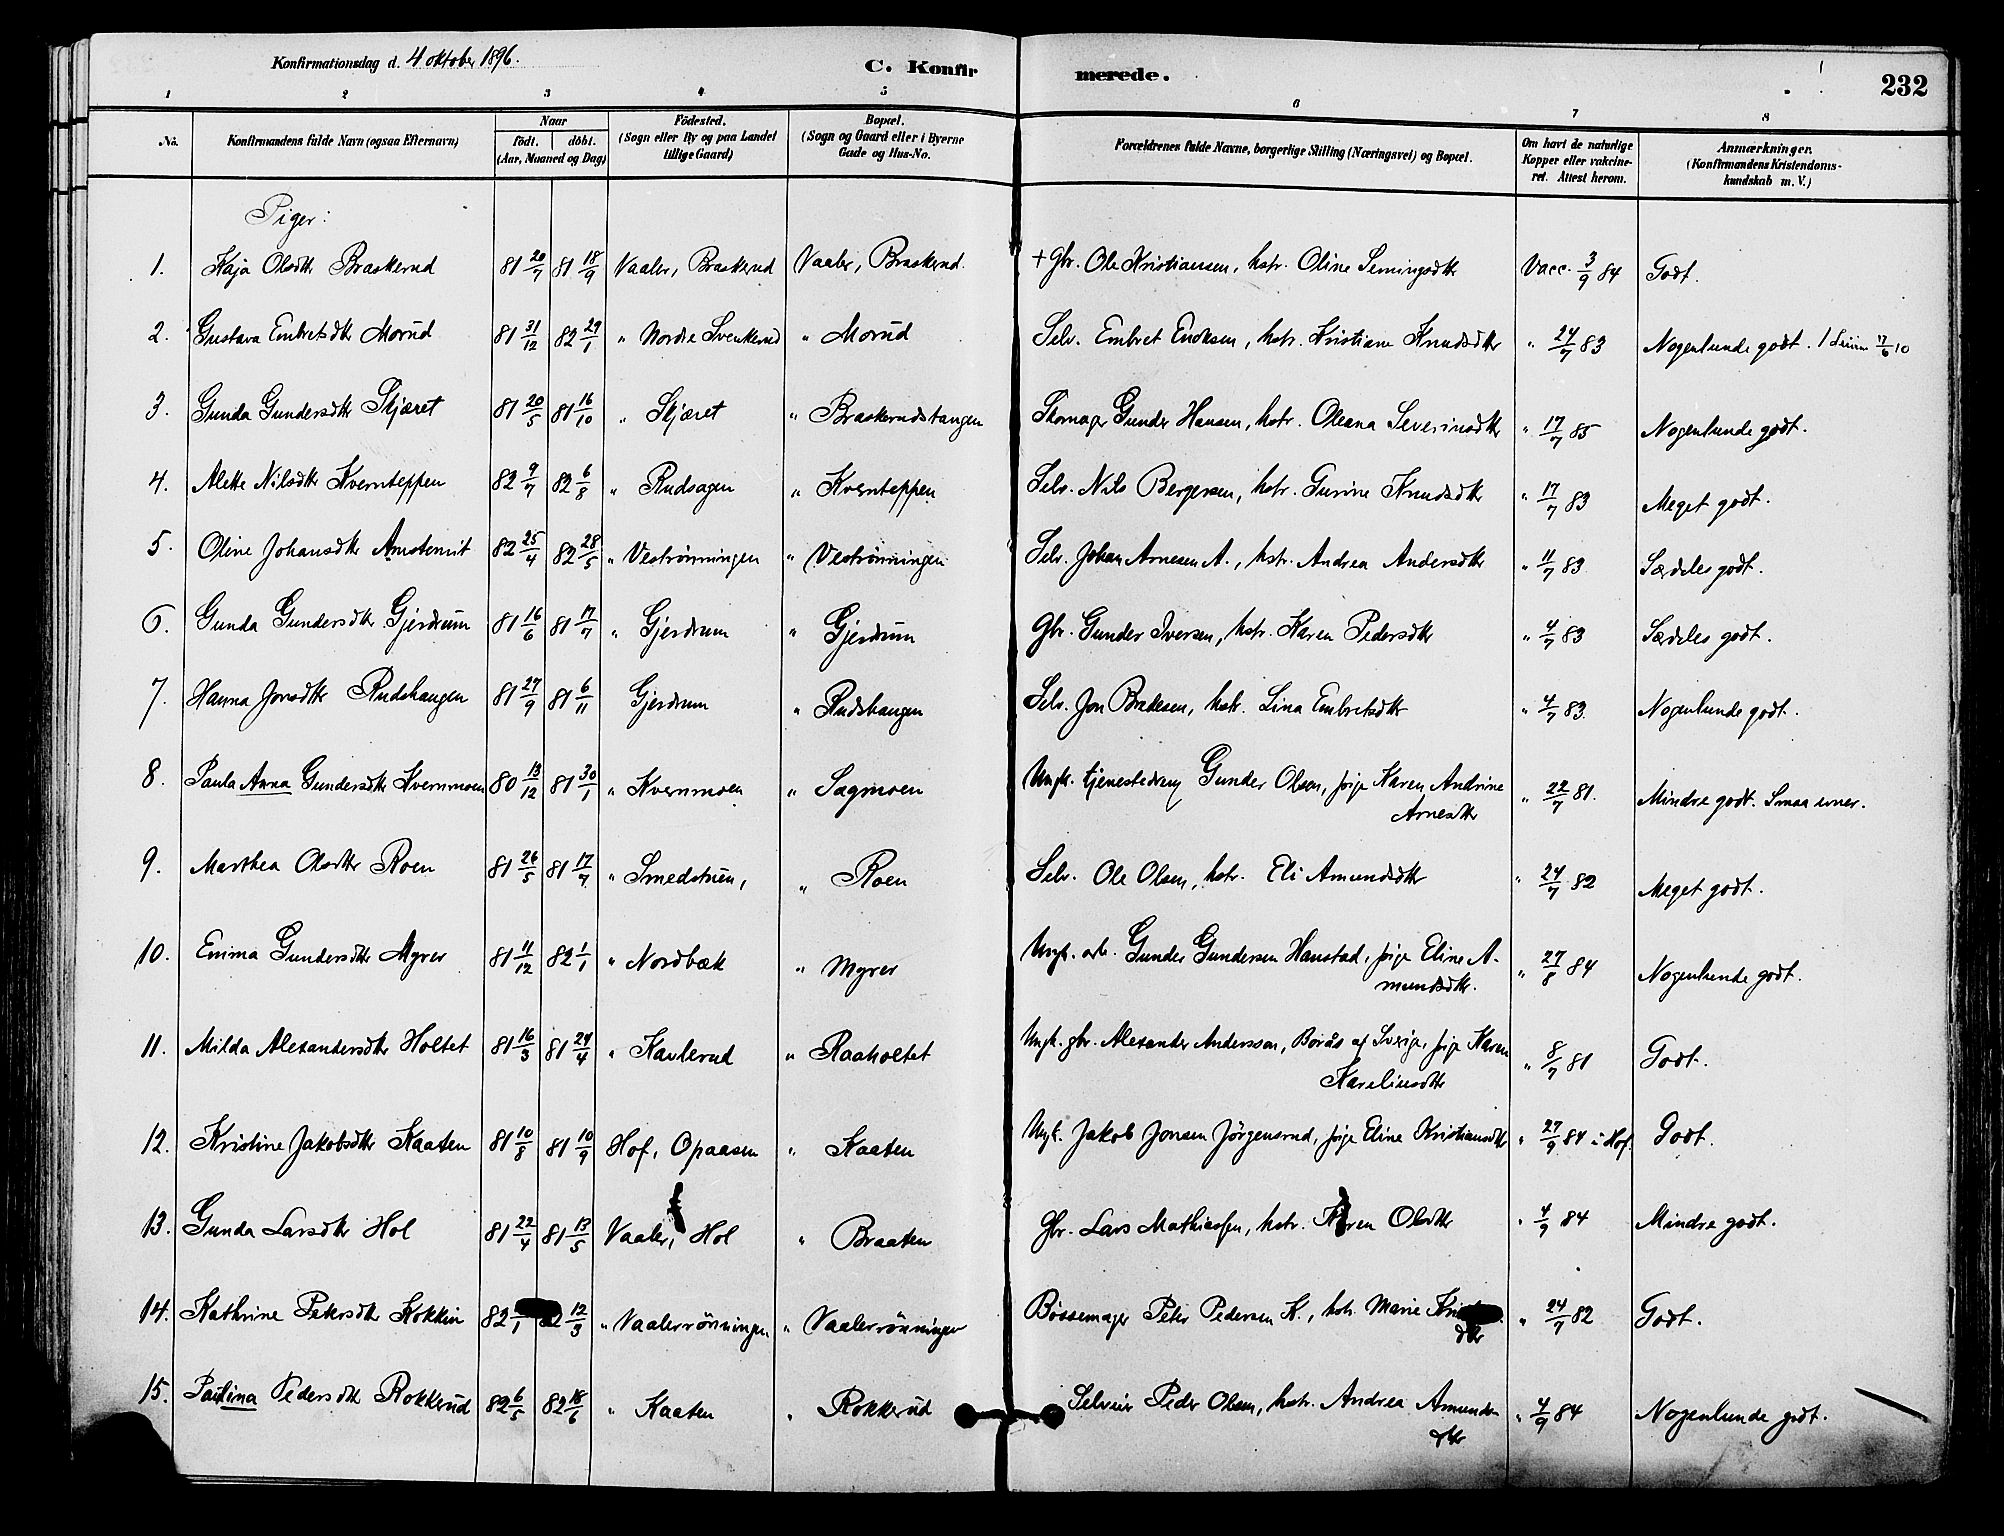 Konfirmationsdag d. 4 oktober 1896.
C. Konfirmerede.
232
1 2 3 4 5 6 7 8
No. Konfirmandens fulde Navn (ogsaa Efternavn) Naar födt. döbt. (Aar, Maaned og Dag) Födested. (Sogn eller By og paa Landet tillige Gaard) Bopæl. (Sogn og Gaard eller i Byerne Gade og Hus-No. Forældrenes fulde Navne, borgerlige Stilling (Næringsvei) og Bopæl. Om havt de naturlige Kopper eller vakcineret. Attest herom. Anmærkninger. (Konfirmandens Kristendomskundskab m. V.)
Piger:
1. Kaja Olsdtr Braskerud 81 20/7 81 18/9 Vaaler, Braskerud Vaaler, Braskerud. + Gbr. Ole Kristiansen, hstr. Oline Semingsdtr Vacc. 3/9 84 Godt.
2. Gustava Embretsdtr Morud 81 31/12 82 29/1 " Nordre Svenkerud " Morud Selv. Embret Eriksen, hstr. Kristiane Knudsdtr " 24/7 83 Nogenlunde godt. 17/6 10
3. Gunda Gundersdtr Skjæret 81 20/5 81 16/10 " Skjæret " Braskerudstangen Skomager Gunder Hansen, hstr. Oleana Severinsdtr " 17/7 85 Nogenlunde godt.
4. Alette Nilsdtr Kvernteppen 82 9/7 82 6/8 " Rudsagen " Kvernteppen Selv. Nils Bergersen, hstr. Gurine Knudsdtr " 17/7 83 Meget godt.
5. Oline Johansdtr 82 25/4 82 28/5 " Veströnningen " Veströnningen Selv. Johan Arnesen A., hstr. Andrea Andersdtr " 11/7 83 Særdeles godt.
6. Gunda Gundersdtr Gjerdrum 81 16/6 81 17/7 " Gjerdrum " Gjerdrum Gbr. Gunder Iversen, hstr. Karen Pedersdtr " 4/7 83 Særdeles godt.
7. Hanna Jonsdtr Rudshaugen 81 27/9 81 6/11 Gjerdrum " Rudshaugen Selv. Jon Bredesen, hstr. Lina Embretsdtr " 4/7 83. Nogenlunde godt.
8. Paula Anna Gundersdtr Kvernmoen 80 13/12 81 30/1 " Kvernmoen " Sagmoen Ungk. tjenestedreng Gunder Olsen, pige Karen Andrine " 22/7 81. Mindre godt. Smaa evner.
Arnesdtr
9. Marthea Olsdtr Roen 81 26/5 81 17/7 " Smedstuen, " Roen Selv. Ole Olsen, hstr. Eli Amundsdtr " 24/7 82 Meget godt.
10. Emma Gundersdtr Myrer 81 11/12 82 1/1 " Nordbæk " Myrer Ungk. arb. Gunder Gundersen Haustad, pige Eline A- " 27/8 84 Nogenlunde godt.
mundsdtr.
11. Milda Alexandersdtr Holtet 81 16/3 81 24/4 " Kavlerud " Raaholtet Ungk. gbr. Alexander Andersson, Borås af Sverige, pige Karen " 8/7 81 Godt.
Karelinsdtr
12. Kristine Jakobsdtr Kaaten 81 10/8 81 10/9 Hof, Opaasen " Kaaten Ungk. Jakob Jonsen Jörgensrud, pige Eline Kristiansdtr " 27/9 84 i Hof. Godt.
13. Gunda Larsdtr Hol 81 22/4 81 13/5 Vaaler, Hol " Braaten Gbr. Lars Mathiassen, hstr. Karen Olsdtr " 4/9 84 Mindre godt.
14. Kathrine Petersdtr Kokkin 82 /1 82 12/3 " Vaalerrönningen " Vaalerrönningen Bössemager Peter Pedersen K., hstr. Marie " 24/7 82 Godt.
dtr
15. Paulina Pedersdtr Rokkerud 82 6/5 82 18/6 " Kaaten " Rokkerud Selveier Peder Olsen, hstr. Andrea Amunds- " 4/9 84 Nogenlunde godt.
dtr